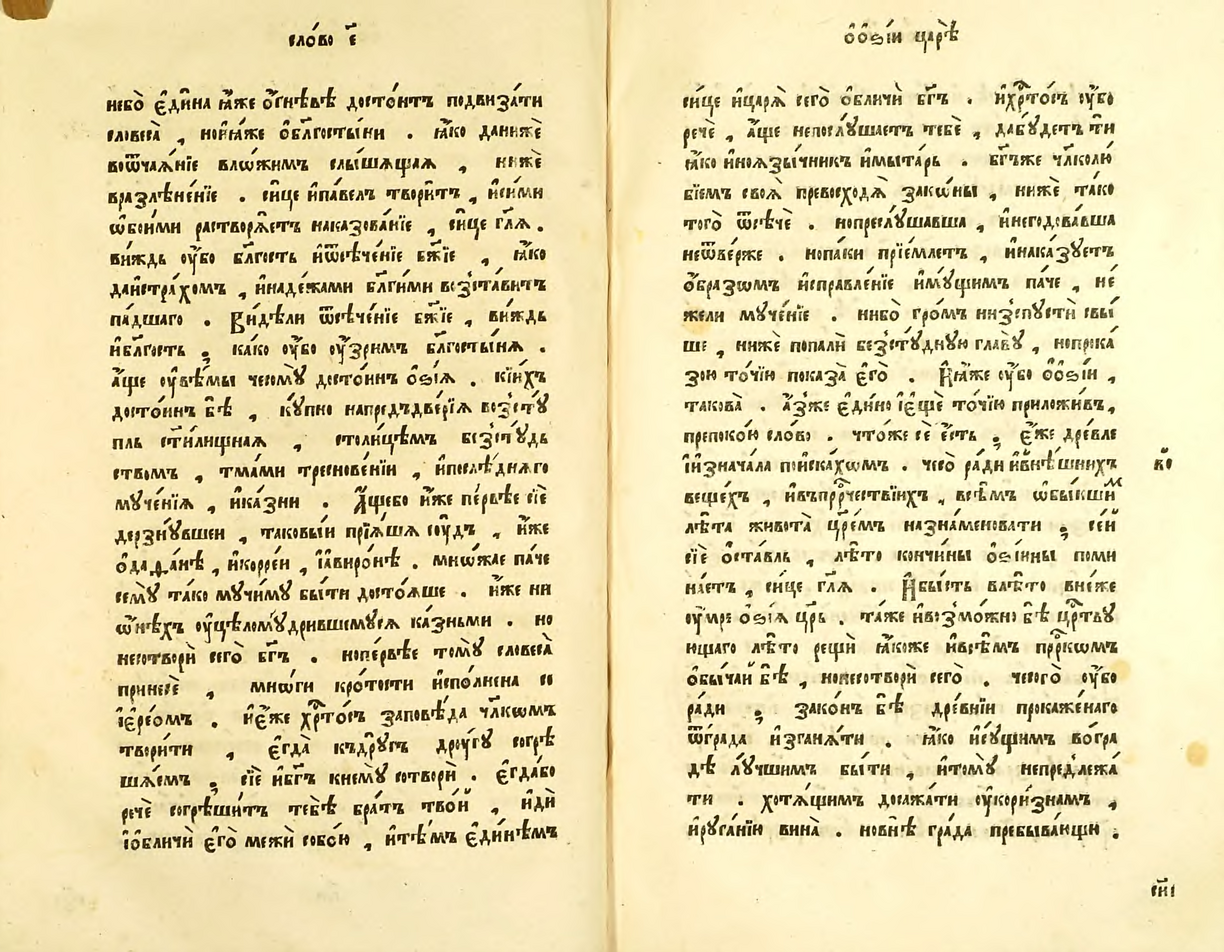 сло́во є҃
небо̀ є҆ди́на ꙗ҆́же ѻ҆́гневѣ досто́итъ подвиза́ти
словеса̀ , нои҆ꙗ҆́же ѻ҆бл҃госты́ни . ꙗ҆́ко данижѐ
воѿчаѧ́нїе влѡ́жимъ слы́шѧщаѧ , нижѐ
вразлѣне́нїе . си́це и҆па́велъ твори́тъ , и҆си́ми
ѡ҆бои́ми растворѧ́етъ наказова́нїе , си́це гл҃ѧ .
ви́ждь ᲂу҆̀бо бл҃гость и҆ѿсѣче́нїе бж҃їе , ꙗ҆́ко
даи҆стра́хомъ , и҆наде́жами бл҃ги́ми возста́витъ
па́дшаго . Ви́дѣли ѿсѣче́нїе бж҃їе , ви́ждь
и҆бл҃гость ; ка́ко ᲂу҆̀бо ᲂу҆́зримъ бл҃госты́нѧ .
а҆́ще ᲂу҆вѣ́мы чесомꙋ̀ досто́инъ ѻ҆́ѕїѧ . кі́ихъ
досто́инъ бѣ̀ , кꙋ́пно напредъдве́рїѧ возстꙋ́
пль сти́лищнаѧ , столи́цѣмъ безстꙋ́дь
ствомъ , тма́ми треснове́нїи , и҆послѣ́днѧго
мꙋче́нїѧ , и҆ка́зни . А҆́щебо и҆́же пе́рвѣе сїѐ
дерзнꙋ́вшеи , таковы́и прїѧ́шѧ сꙋ́дъ , и҆́же
ѻ҆дада́нѣ , и҆корре́и , і҆авиро́нѣ . мно́жае па́че
семꙋ̀ та́ко мꙋчи́мꙋ бы́ти досто́ѧше . и҆́же ни
ѡ҆́нѣхъ ᲂу҆цѣломꙋ́дрившемꙋсѧ ка́зньми . но
несотворѝ сего̀ бг҃ъ . нопе́рвѣе томꙋ̀ словеса̀
принесѐ , мно́ги кро́тости и҆спо́лнена со
і҆ере́омъ . и҆є҆́же хрⷭ҇то́съ заповѣ́да чл҃кѡмъ
твори́ти , є҆гда̀ къдрꙋ́гъ дрꙋ́гꙋ согрѣ
ша́емъ ; сїѐ и҆бг҃ъ кнемꙋ̀ сотворѝ . є҆гда́бо
речѐ согрѣши́тъ тебѣ̀ бра́тъ тво́й , и҆дѝ
і҆ѻ҆бличѝ є҆го̀ межѝ собо́ю , и҆тѣ́мъ є҆ди́нѣмъ
ѻ҆ѻ҆ѕі́и царѣ̀
си́це и҆царѧ̀ сего̀ ѻ҆бличѝ бг҃ъ . и҆хрⷭ҇то́съ ᲂу҆́бо
речѐ , а҆́ще непослꙋ́шаетъ тебѐ , дабꙋ́детъ тѝ
ꙗ҆́ко и҆ноѧзы́чникъ и҆мы́тарь . бг҃ъже чл҃колю́
бїемъ своѧ̀ превосходѧ̀ зако́ны , нижѐ та́ко
того̀ ѿсѣчѐ . нопреслꙋ́шавша , и҆негодова́вша
неѿве́рже . нопа́ки прїе́млетъ , и҆наказꙋ́етъ
ѻ҆́бразѡмъ и҆справле́нїе и҆мꙋ́щимъ па́че , не́
жели мꙋче́нїе . нибо̀ гро́мъ низпꙋстѝ свы́
ше , нижѐ попалѝ безстꙋ́днꙋю главꙋ̀ , нопрока́
зою то́чїю показа̀ є҆го̀ . И҆ꙗ҆́же ᲂу҆́бо ѻ҆ѻ҆ѕі́и ,
такова̀ . а҆́зже є҆ди́но і҆є҆щѐ то́чїю приложи́въ ,
препоко́ю сло́во . что́же сѐ є҆́сть ; є҆́же дре́вле
і҆и҆знача́ла пои҆ска́хомъ . чесо̀ ра́ди и҆внѣ́шнихъ
ве́щехъ , и҆въпрⷪ҇ро́чествїихъ , всѣ́мъ ѡ҆бы́кшимъ
лѣ́та живота̀ цр҃е́мъ назна́меновати ; се́й
сїѐ ѻ҆ста́вль , лѣ́то кончи́ны ѻ҆ѕі́ины поми
на́етъ , си́це гл҃ѧ . И҆бы́сть влѣ́то внє́же
ᲂу҆́мре ѻ҆ѕі́ѧ цр҃ь . та́же и҆возмо́жно бѣ̀ црⷭ҇твꙋ
ющаго лѣ́то рещѝ ꙗ҆́коже и҆всѣ́мъ прⷪ҇ро́кѡмъ
ѻ҆бы́чай бѣ̀ , нонесотворѝ сего̀ . чесого̀ ᲂу҆́бо
ра́ди ; зако́нъ бѣ̀ дре́внїи прокаже́наго
ѿгра́да и҆зганѧ́ти . ꙗ҆́ко и҆сꙋ́щимъ вогра́
дѣ лꙋ́чшимъ бы́ти , и҆томꙋ̀ непредлежа́
ти . хотѧ́щимъ досажа́ти ᲂу҆кори́знамъ ,
и҆рꙋга́нїю вина̀ . новнѣ̀ гра́да пребыва́ющи ;